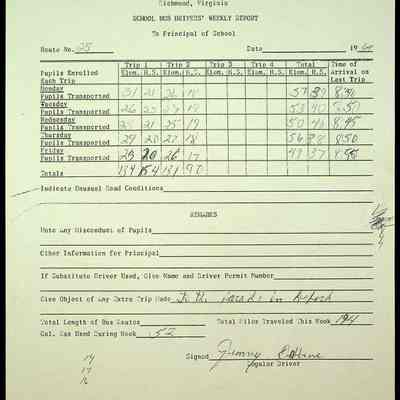 Richmond, Virginia
SCHOOL BUS DRIVERS' WEEKLY REPORT
To Principal of School
Route No. 25 Date 1964
Trip 1 Trip 2 Trip 3 Trip 4 Total Time of
Pupils Enrolled Elem. H.S. Elem. H.S. Elem. H.S. Elem. H.S. Elem. H.S. Arrival on
Each Trip Last Trip
Monday
Pupils Transported 31 21 26 18 57 39
Tuesday
Pupils Transported 26 27 19 53 40
Wednesday
Pupils Transported 21 25 19 50 40 8:45
Thursday
Pupils Transported 29 20 27 18 56 38 8:50
Friday
Pupils Transported 23 20 26 17 49 37
Totals 134 131
Indicate Unusual Road Conditions
REMARKS
Note Any Misconduct of Pupils
Other Information for Principal
If Substitute Driver Used, Give Name and Driver Permit Number
Give Object of Any Extra Trip Made To the in
Total Length of Bus Routes Total Miles Traveled This Week 194
Gal. Gas Used During Week 52
Signed Jimmy
Regular Driver
19
17